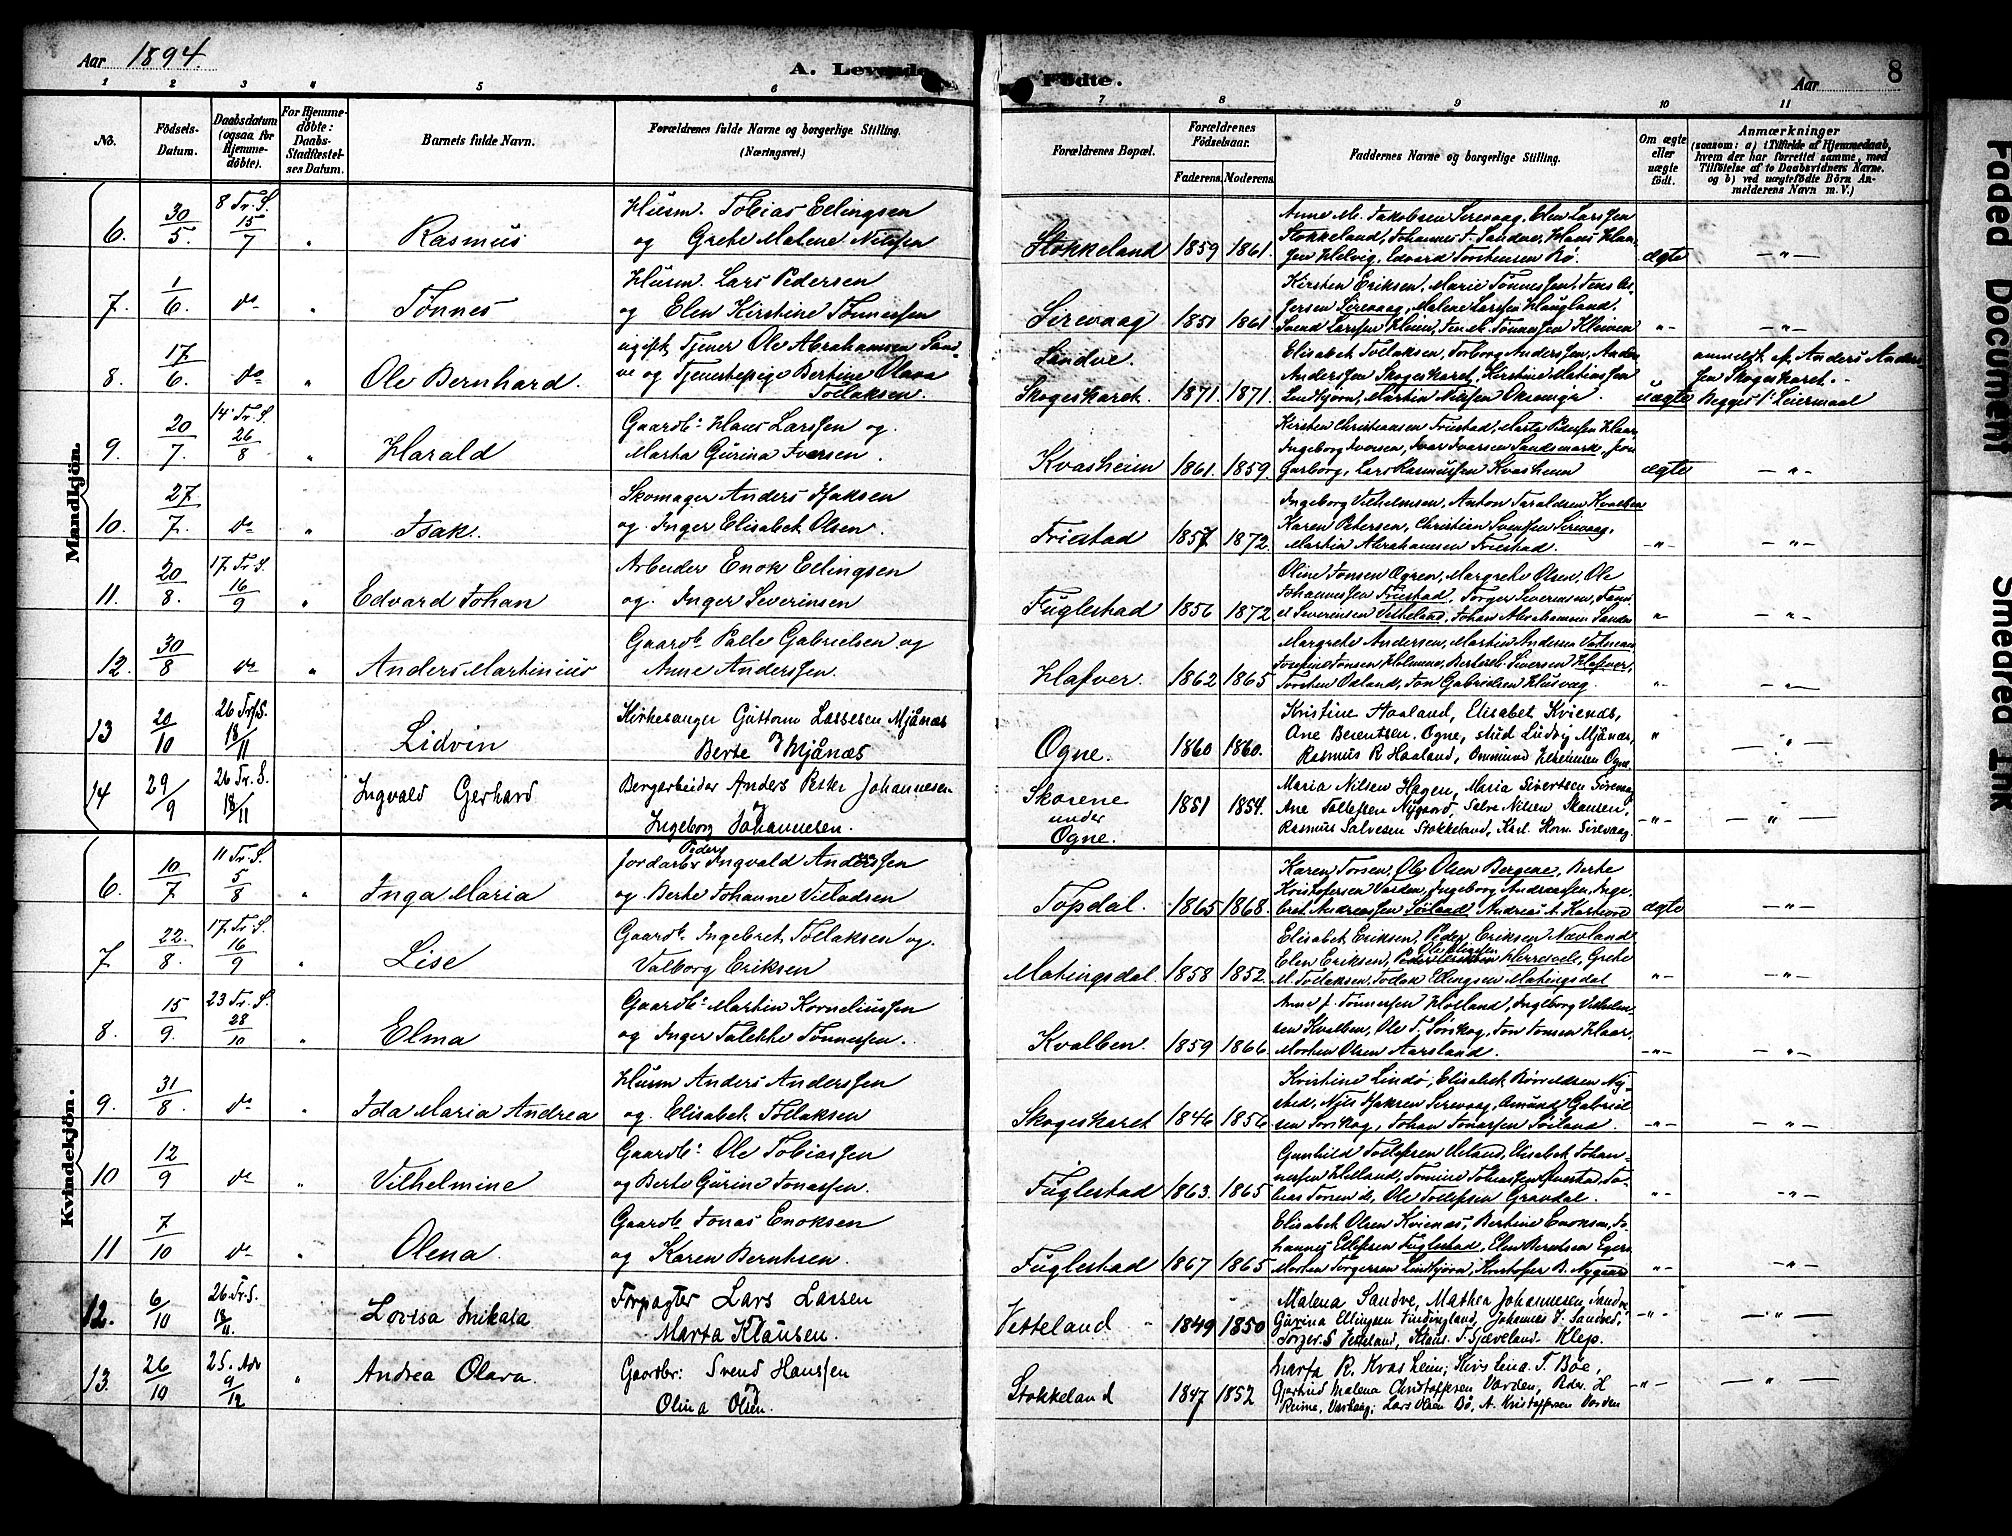 Aar 1894.
A. Levende Fødte.
Aar 8
1 2 3 4 5 6 7 8 9 10 11
No.
Fødsels-Datum.
Daabsdatum (ogsaa for Hjemmedøbte).
For Hjemmedøbte: Daabs-Stadfæstelses Datum.
Barnets fulde Navn.
Forældrenes fulde Navne og borgerlige Stilling.
(Næringsvei.)
Forældrenes Bopæl.
Forældrenes Fødselsaar.
Faderens. Moderens.
Faddernes Navne og borgerlige Stilling.
Om ægte eller uægte født.
Anmærkninger
(saasom: a) i Tilfælde af Hjemmedaab, hvem der har forrettet samme, med Tilføielse af to Daabsvidners Navne. og b) ved uægtefødte Børn Anmelderens Navn m. V.)
Mandkjön.
6. 30/5. 8 Tr. S. 15/7 " Rasmus Husm. Tobias Edlingsen og Grete Malene Nilssen Stokkeland 1859 1861. Anne M. Jakobsen Sirevaag, Elen Larssen Stokkeland, Johannes T. Sandve, Hans Haa- Helvig, Edvard Torstensen Bø. ægte — " —
7. 1/6. do " Tønnes Husm. Lars Pedersen og Elen Kirstine Tønnessen Sirevaag 1851 1861 Kirsten Eriksen, Marie Tønnessen, Sirevaag, Malene Larssen Haugland. Svend Larssen " — " —
8. 17/6. do " Ole Bernhard. ugift Tjener Ole Abrahamsen Sandve og Tjenestepige Bertine Olava Tollaksen. Sandve. Skogeskaret. 1871 1871. Elisabet Tollaksen, Torborg Anderssen, Anderssen Skogeskaret, Kirstine Mathiassen Lindtjørn, Martin Nilssen uægte anmeldt af Anders Anderssen Skogeskaret. Begges 1' Leiermaal
9. 20/7. 14' Tr. S. 26/8 " Harald Gaardb: Hans Larssen og Marta Gurina Iversen. Kvasheim 1861. 1859. Kirsten Christiansen Fuistad, Marta Pedersen Haar, Ingeborg Iversen, Ivar Iversen Sandsmark, Garborg, Lars Rasmussen Kvasheim ægte — " —
10. 27/7. do " Isak. Skomager Anders Isaksen og Inger Elisabet Olsen. Fristad 1857 1872. Ingeborg Vilhelmsen, Anton Taraldsen Kvalben Karen Petersen, Christian Svenssen Sirevaag, Martin Abrahamsen Fristad. — " — — " —
11. 20/8. 17. Tr. S. 16/9 " Edvard Johan Arbeider Enok Edlingsen og Inger Severinsen Fuglestad 1856 1872 Oline Jonsen Ogren, Margrete Olsen, Ole Johannessen Fristad, Torger Severinsen, Severinsen Vetteland, Johan Abrahamsen " — " —
12. 30/8 do " Anders Martinius Gaardb. Palle Gabrielsen og Anne Anderssen. Hafver. 1862 1865 Margrete Andersen, Martin Andersen Josefine Jonsen Holmene, Sivertsen Hafver, Torsten Osland, Jon Gabrielsen Husvaag. " — " —
13 20/10 26 Tr. S. 18/11 Lidvin Kirkesanger Guttorm Lassesen Mjånæs og Berte Mjånæs Ogne. 1860 1860. Kristine Haaland, Elisabet Kvienæs, Ane Berentsen Ogne, stud Ludvig Mjånæs, Rasmus R Haaland, Ommund Ogne. " — " —
14 29/9 26 Tr. S. 18/11 Ingvald Gerhard Bergarbeider Anders Peter Johannesen og Ingeborg Johannesen. Skorene under Ogne. 1851 1854. Maria Nilsen Hagen, Maria Sivertsen Sirevaag Ane Tollefsen Nygaard, Salve Nilsen Skansen, Rasmus Salvesen Stokkeland, Karl Horn Sirevaag. — " — — " —
Kvindekjön.
6. 10/7 11 Tr. S. 5/8 " Inga Maria Jordarbr Peder Ingvald Anderssen og Berte Johanne Villadsen Topdal. 1865 1868. Karen Torsen, Ole Olsen Bergene, Berte Kristofersen Varden, Ingeborg Andreassen, Andreassen Søiland, Andreas A. ægte — " —
7 22./8. 17 Tr. S. 16/9 " Lise Gaardb. Ingebret Tollaksen og Valborg Eriksen Matingsdal 1858 1852. Elisabet Eriksen, Peder Eriksen Nævland Elen Eriksen, Grete M. Tollaksen, Edlingsen Matingsdal " — " —
8. 15/9. 23 Tr. S. 28/10 " Elma Gaardb: Martin Korneliussen og Inger Talette Tønnessen. Kvalben. 1859 1866. Anne J. Tønnessen Hølland, Ingeborg Vilhelmsen Kvalben, Ole T. Sørskog, Jon Jonsen Haar, Morten Olsen Aarsland. — " — — " —
9. 31/8. do " Ida Maria Andrea Husm Anders Anderssen og Elisabet Tollaksen Skogeskaret 1846 1856. Kristine Lindø, Elisabet Nysted, Nils Isaksen Sirevaag, Omund Gabrielsen Torskog, Johan Jonassen Søiland. — " — — " —
10 12/9 do " Vilhelmine Gaardb: Ole Tobiassen og Berte Gurine Jonassen. Fuglestad 1863. 1865 Gunhild Tollefsen Ueland, Elisabet Johannessen Ueland, Tomine Tobiassen Ole Tollefsen Gravdal. " — " —
11 7/10 do " Olena. Gaardb. Jonas Enoksen og Karen Berntsen. Fuglestad 1867 1865 Elisabet Olsen Kvienæs, Bertine Enoksen, Johannes Ellefsen Fuglestad, Elen Berntsen Egers Morten Torgersen Lindtjørn, Kristofer B. Nygaard " — " —
12. 6/10 26 Tr. S. 18/11. Lovisa Mikala Forpagter Lars Lassen og Marta Klausen. Vetteland 1849 1850 Malena Sandve, Mathea Johannesen Sandve, Gurina Ellingsen Johannes J. Sandved, Torger S Vetteland, Klaus T. Tjæveland Klep. " — " —
13. 26/10 25. Adv 9/12 " Andrea Olava. Gaardbr: Svend Hanssen og Olina Olsen. Stokkeland 1847 1852 Marta R. Kvasheim, Kirstina T. Bøe, Gjertrud Malena Christoffersen Varden, Peder H Reime, Varhaug; Lars Olsen Bø, A. Kristoffersen Varden — " — — " —
Faded Document
Smeared Ink